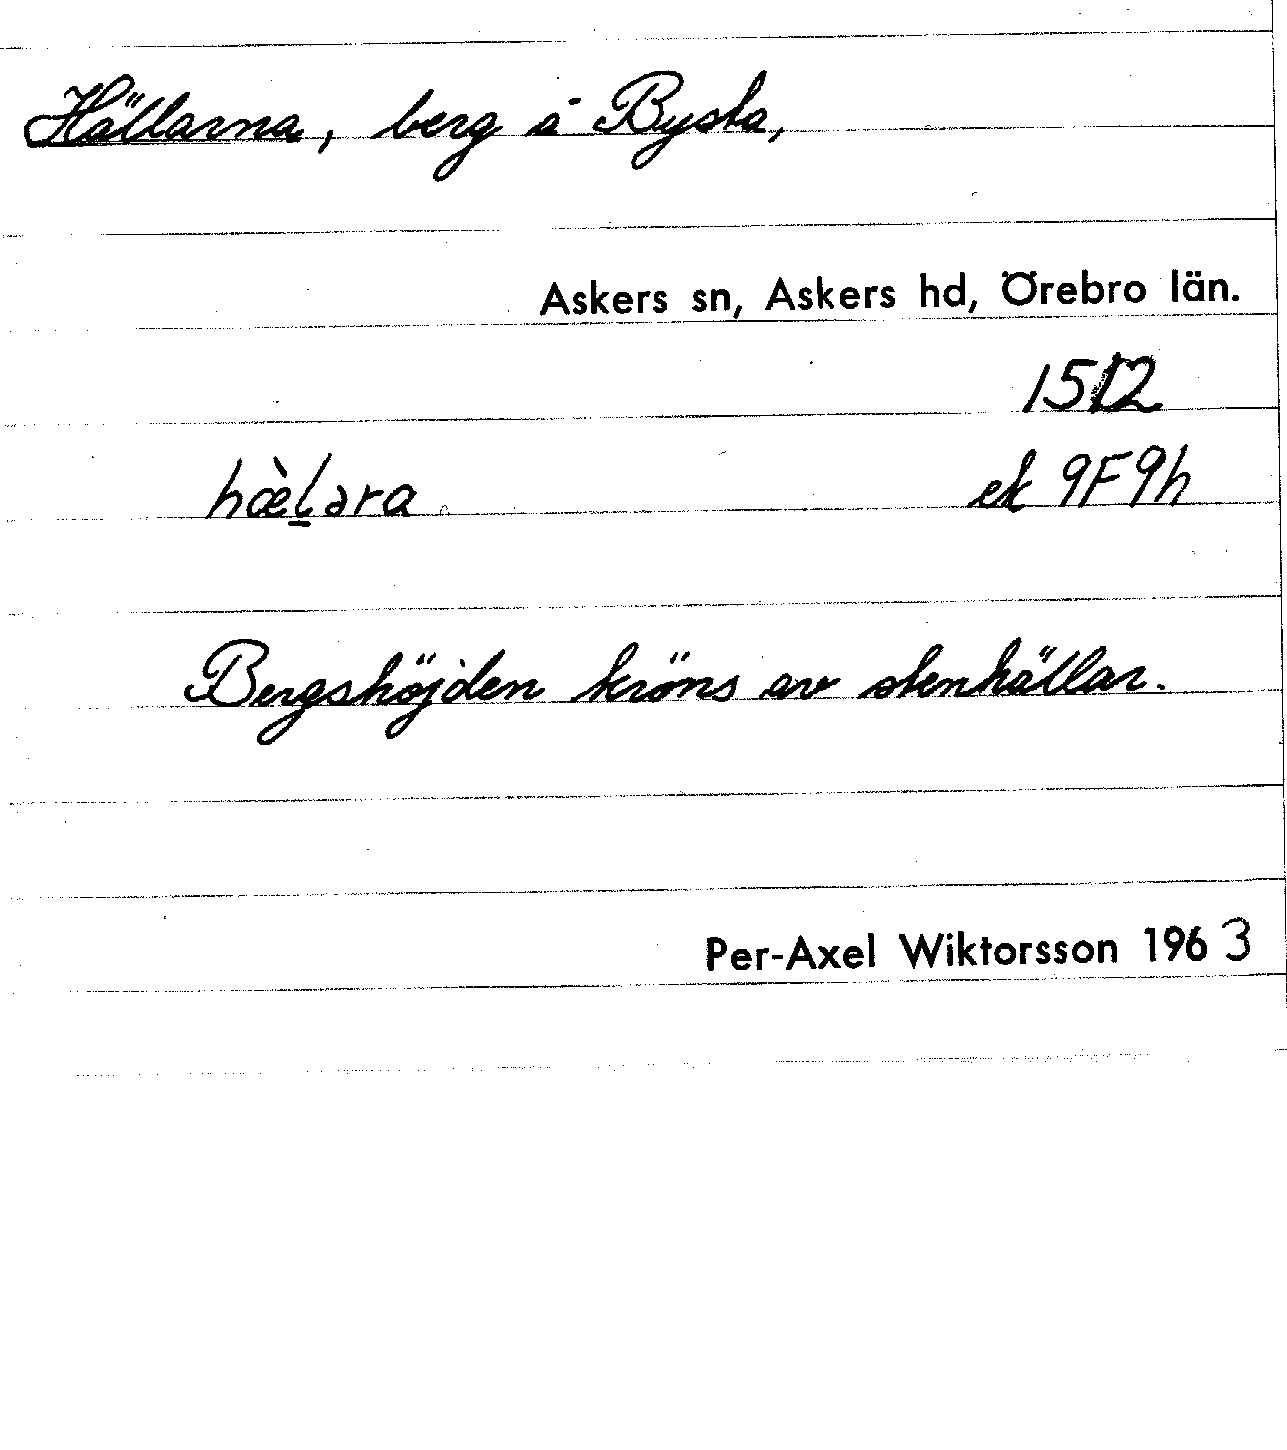 Hällarna, berg å Bysta,
Askers sn, Askers hd, Örebro län.
1512
hæ̀l̲ara
ek 9F9h
Bergshöjden kröns av stenhällar.
Per-Axel Wiktorsson 1963